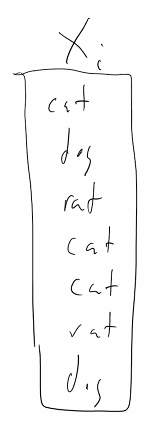 Xi
cat
dog
rat
cat
cat
rat
dog